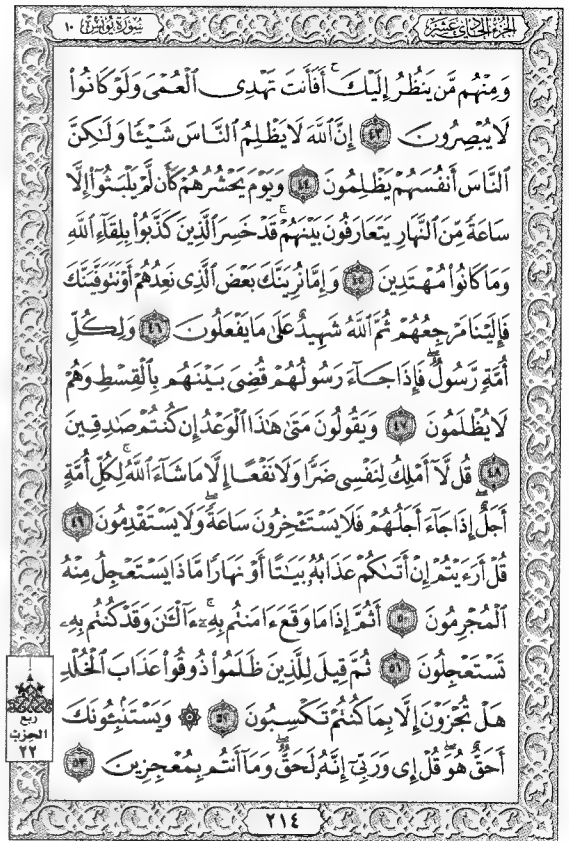 سُورَةُ يُونُسَ ١٠
الجُزْءُ الحَادِي عَشَرَ
وَمِنْهُم مَّن يَنظُرُ إِلَيْكَ ۚ أَفَأَنتَ تَهْدِى الْعُمْىَ وَلَوْ كَانُوا۟
لَا يُبْصِرُونَ ٤٣ إِنَّ اللَّهَ لَا يَظْلِمُ النَّاسَ شَيْـًٔا وَلَـٰكِنَّ
النَّاسَ أَنفُسَهُمْ يَظْلِمُونَ ٤٤ وَيَوْمَ يَحْشُرُهُمْ كَأَن لَّمْ يَلْبَثُوٓا۟ إِلَّا
سَاعَةً مِّنَ النَّهَارِ يَتَعَارَفُونَ بَيْنَهُمْ ۚ قَدْ خَسِرَ الَّذِينَ كَذَّبُوا۟ بِلِقَآءِ اللَّهِ
وَمَا كَانُوا۟ مُهْتَدِينَ ٤٥ وَإِمَّا نُرِيَنَّكَ بَعْضَ الَّذِى نَعِدُهُمْ أَوْ نَتَوَفَّيَنَّكَ
فَإِلَيْنَا مَرْجِعُهُمْ ثُمَّ اللَّهُ شَهِيدٌ عَلَىٰ مَا يَفْعَلُونَ ٤٦ وَلِكُلِّ
أُمَّةٍ رَّسُولٌ ۖ فَإِذَا جَآءَ رَسُولُهُمْ قُضِىَ بَيْنَهُم بِالْقِسْطِ وَهُمْ
لَا يُظْلَمُونَ ٤٧ وَيَقُولُونَ مَتَىٰ هَـٰذَا الْوَعْدُ إِن كُنتُمْ صَـٰدِقِينَ
٤٨ قُل لَّآ أَمْلِكُ لِنَفْسِى ضَرًّا وَلَا نَفْعًا إِلَّا مَا شَآءَ اللَّهُ ۗ لِكُلِّ أُمَّةٍ
أَجَلٌ ۚ إِذَا جَآءَ أَجَلُهُمْ فَلَا يَسْتَـْٔخِرُونَ سَاعَةً ۖ وَلَا يَسْتَقْدِمُونَ ٤٩
قُلْ أَرَءَيْتُمْ إِنْ أَتَىٰكُمْ عَذَابُهُۥ بَيَـٰتًا أَوْ نَهَارًا مَّاذَا يَسْتَعْجِلُ مِنْهُ
الْمُجْرِمُونَ ٥٠ أَثُمَّ إِذَا مَا وَقَعَ ءَامَنتُم بِهِۦٓ ۚ ءَآلْـَٔـٰنَ وَقَدْ كُنتُم بِهِۦ
تَسْتَعْجِلُونَ ٥١ ثُمَّ قِيلَ لِلَّذِينَ ظَلَمُوا۟ ذُوقُوا۟ عَذَابَ الْخُلْدِ
هَلْ تُجْزَوْنَ إِلَّا بِمَا كُنتُمْ تَكْسِبُونَ ٥٢ ۞ وَيَسْتَنۢبِـُٔونَكَ
أَحَقٌّ هُوَ ۖ قُلْ إِى وَرَبِّىٓ إِنَّهُۥ لَحَقٌّ ۖ وَمَآ أَنتُم بِمُعْجِزِينَ ٥٣
ربع
الحزب
٢٢
٢١٤